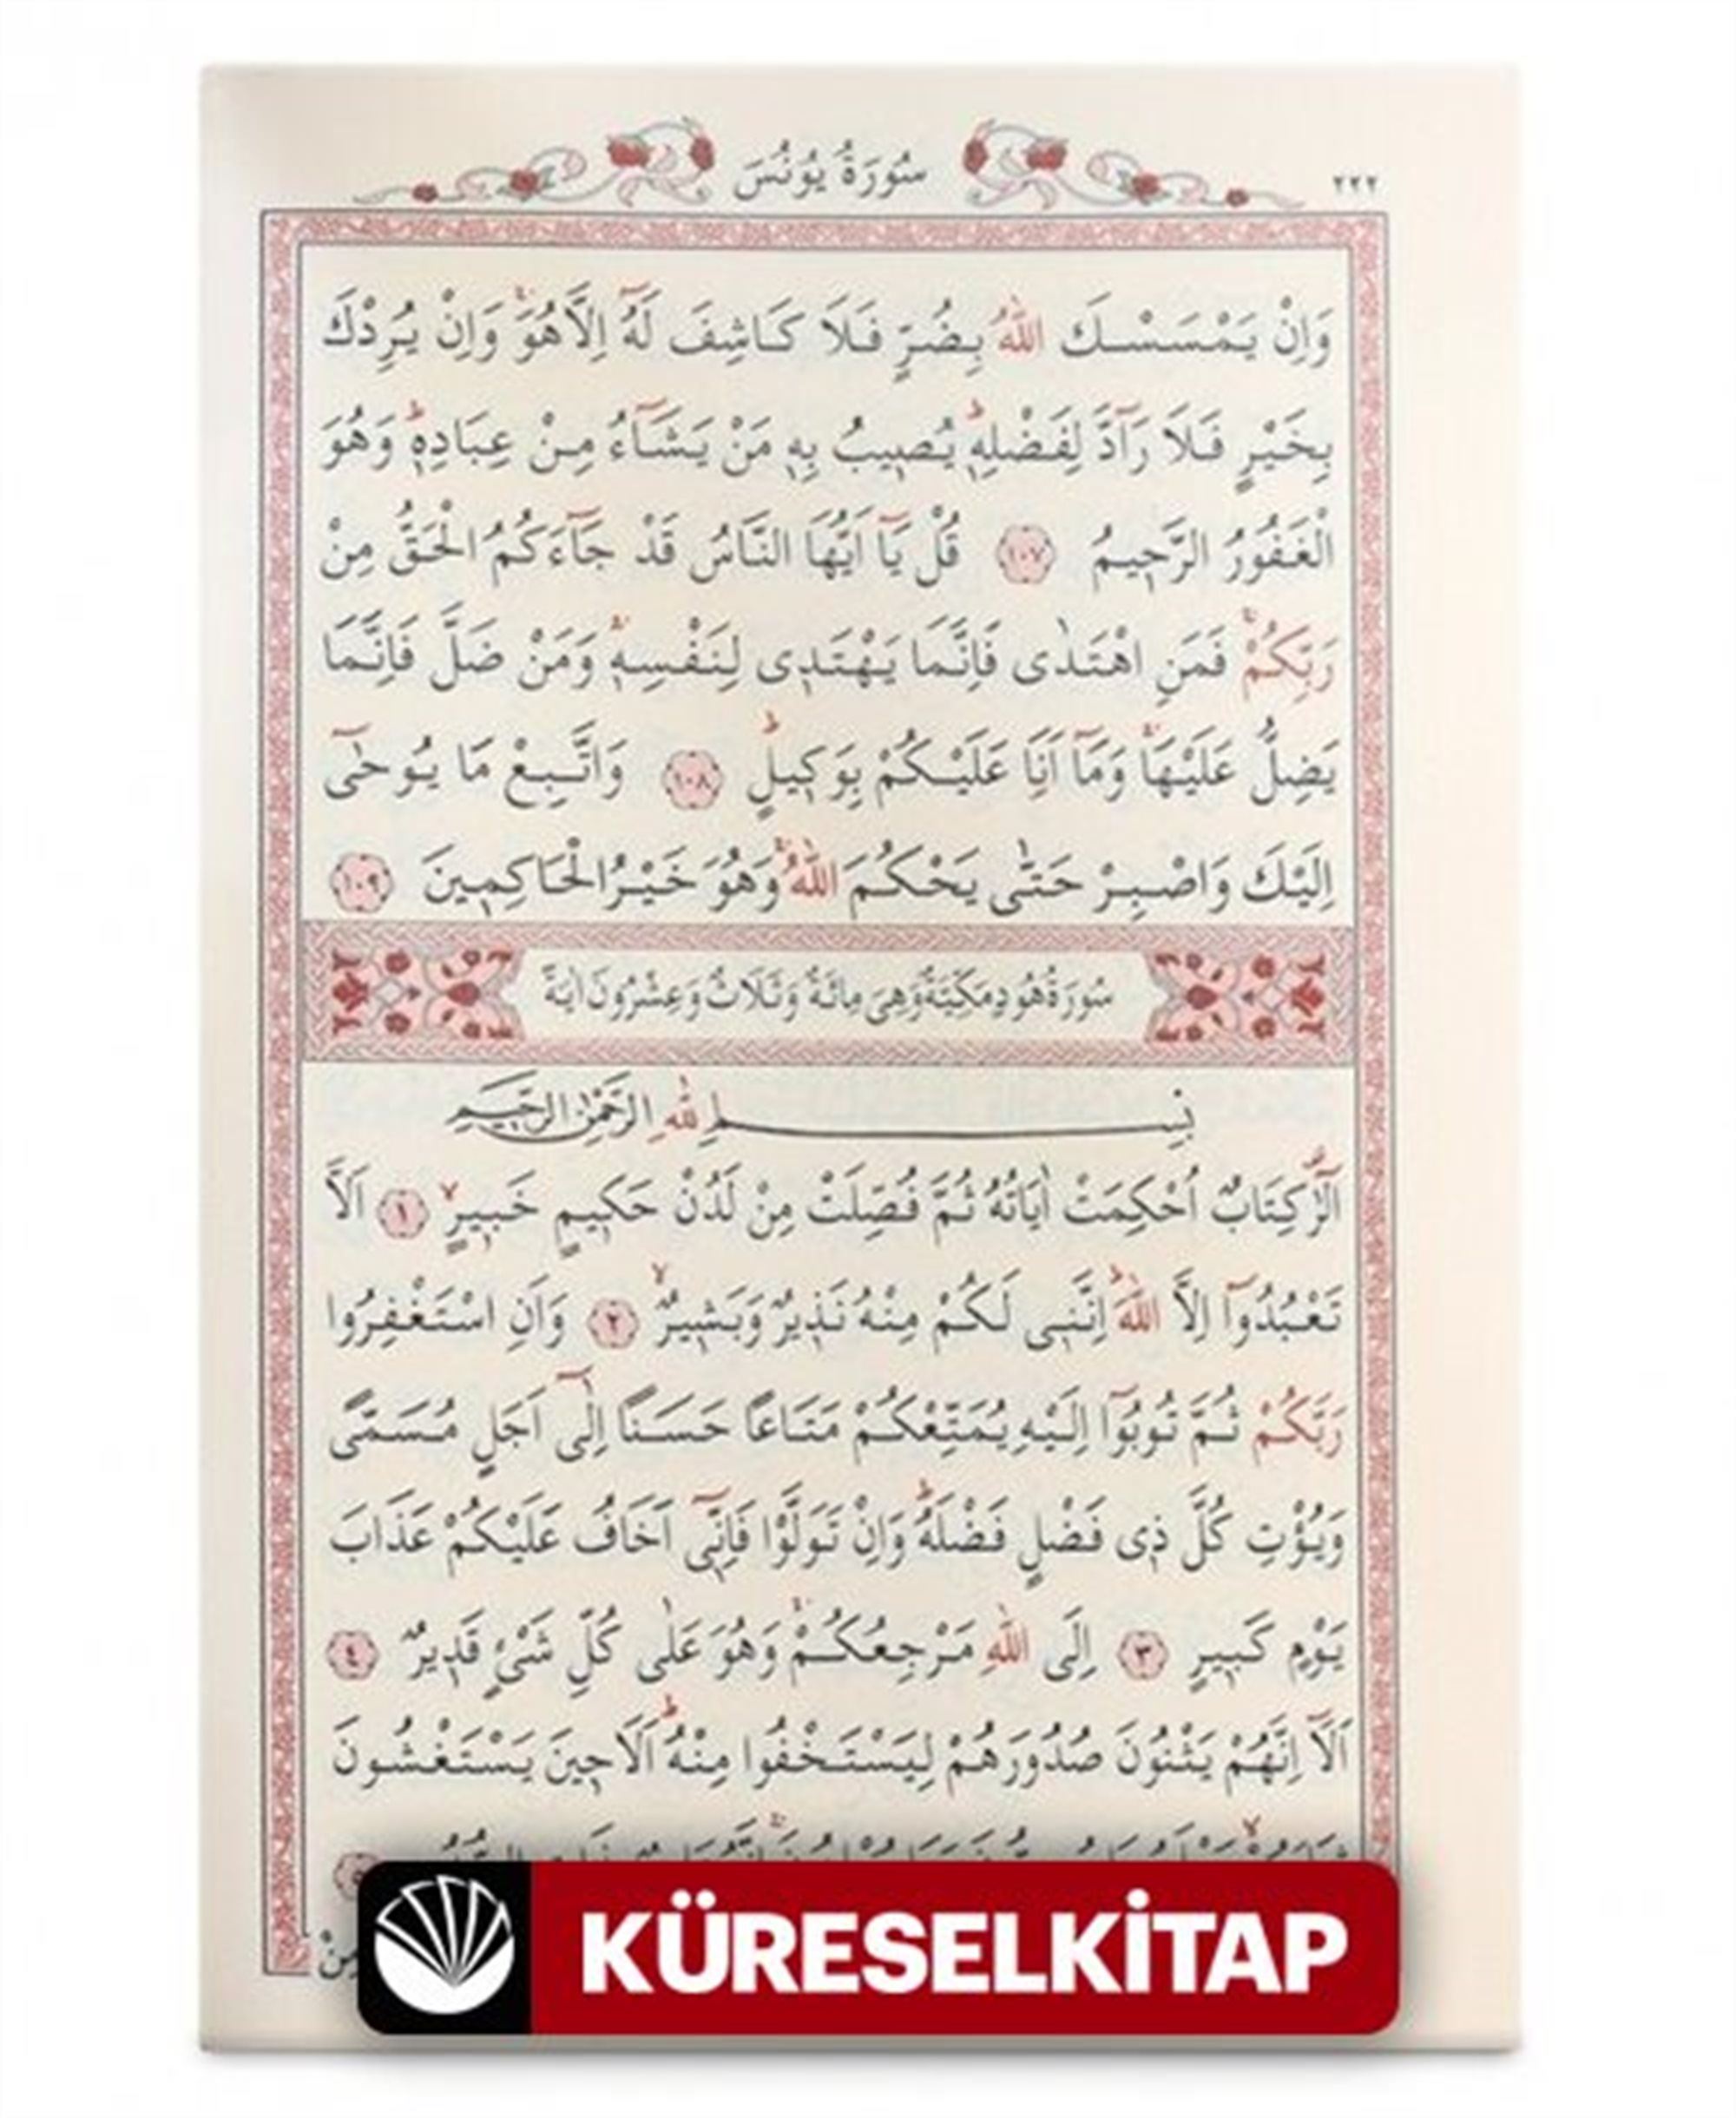 سُورَةُ يُونُسَ
٢٢٢
وَاِنْ يَمْسَسْكَ اللّٰهُ بِضُرٍّ فَلَا كَاشِفَ لَهُٓ اِلَّا هُوَۚ وَاِنْ يُرِدْكَ
بِخَيْرٍ فَلَا رَٓادَّ لِفَضْلِهٖؕ يُصٖيبُ بِهٖ مَنْ يَشَٓاءُ مِنْ عِبَادِهٖؕ وَهُوَ
الْغَفُورُ الرَّحٖيمُ ١٠٧ قُلْ يَٓا اَيُّهَا النَّاسُ قَدْ جَٓاءَكُمُ الْحَقُّ مِنْ
رَبِّكُمْۚ فَمَنِ اهْتَدٰى فَاِنَّمَا يَهْتَدٖى لِنَفْسِهٖۚ وَمَنْ ضَلَّ فَاِنَّمَا
يَضِلُّ عَلَيْهَاۚ وَمَٓا اَنَا عَلَيْكُمْ بِوَكٖيلٍؕ ١٠٨ وَاتَّبِعْ مَا يُوحٰٓى
اِلَيْكَ وَاصْبِرْ حَتّٰى يَحْكُمَ اللّٰهُۚ وَهُوَ خَيْرُ الْحَاكِمٖينَ ١٠٩
سُورَةُ هُودٍ مَكِّيَّةٌ وَهِىَ مِائَةٌ وَثَلَاثٌ وَعِشْرُونَ اٰيَةً
بِسْمِ اللّٰهِ الرَّحْمٰنِ الرَّحٖيمِ
الٓرٰ كِتَابٌ اُحْكِمَتْ اٰيَاتُهُ ثُمَّ فُصِّلَتْ مِنْ لَدُنْ حَكٖيمٍ خَبٖيرٍۙ ١ اَلَّا
تَعْبُدُٓوا اِلَّا اللّٰهَؕ اِنَّنٖى لَكُمْ مِنْهُ نَذٖيرٌ وَبَشٖيرٌۙ ٢ وَاَنِ اسْتَغْفِرُوا
رَبَّكُمْ ثُمَّ تُوبُٓوا اِلَيْهِ يُمَتِّعْكُمْ مَتَاعًا حَسَنًا اِلٰٓى اَجَلٍ مُسَمًّى
وَيُؤْتِ كُلَّ ذٖى فَضْلٍ فَضْلَهُؕ وَاِنْ تَوَلَّوْا فَاِنّٖٓى اَخَافُ عَلَيْكُمْ عَذَابَ
يَوْمٍ كَبٖيرٍ ٣ اِلَى اللّٰهِ مَرْجِعُكُمْۚ وَهُوَ عَلٰى كُلِّ شَىْءٍ قَدٖيرٌ ٤
اَلَٓا اِنَّهُمْ يَثْنُونَ صُدُورَهُمْ لِيَسْتَخْفُوا مِنْهُؕ اَلَا حٖينَ يَسْتَغْشُونَ
KÜRESELKİTAP